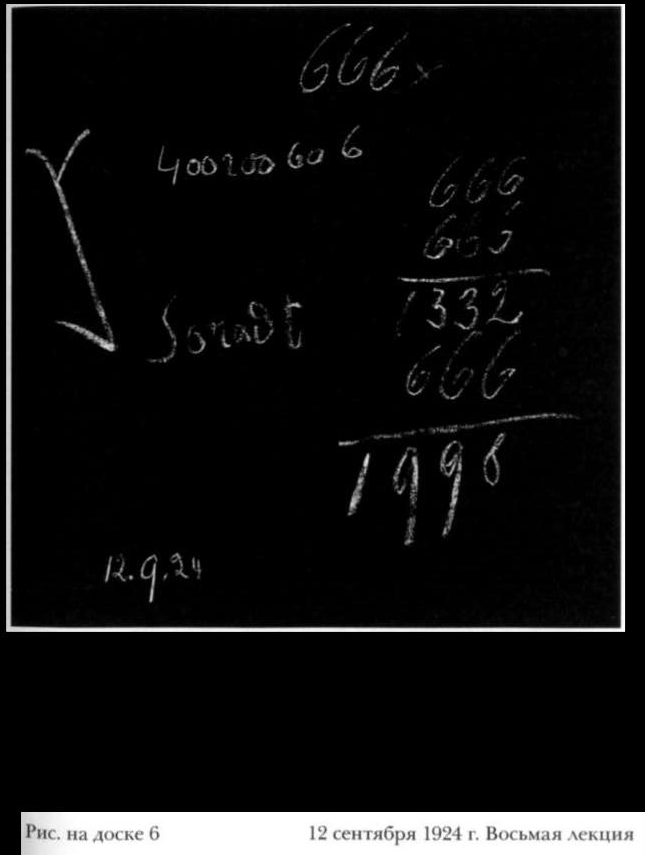 666 x
400 200 60 6
666
666
1332
Soradt
666
1998
12.9.24
Рис. на доске 6
12 сентября 1924 г. Восьмая лекция